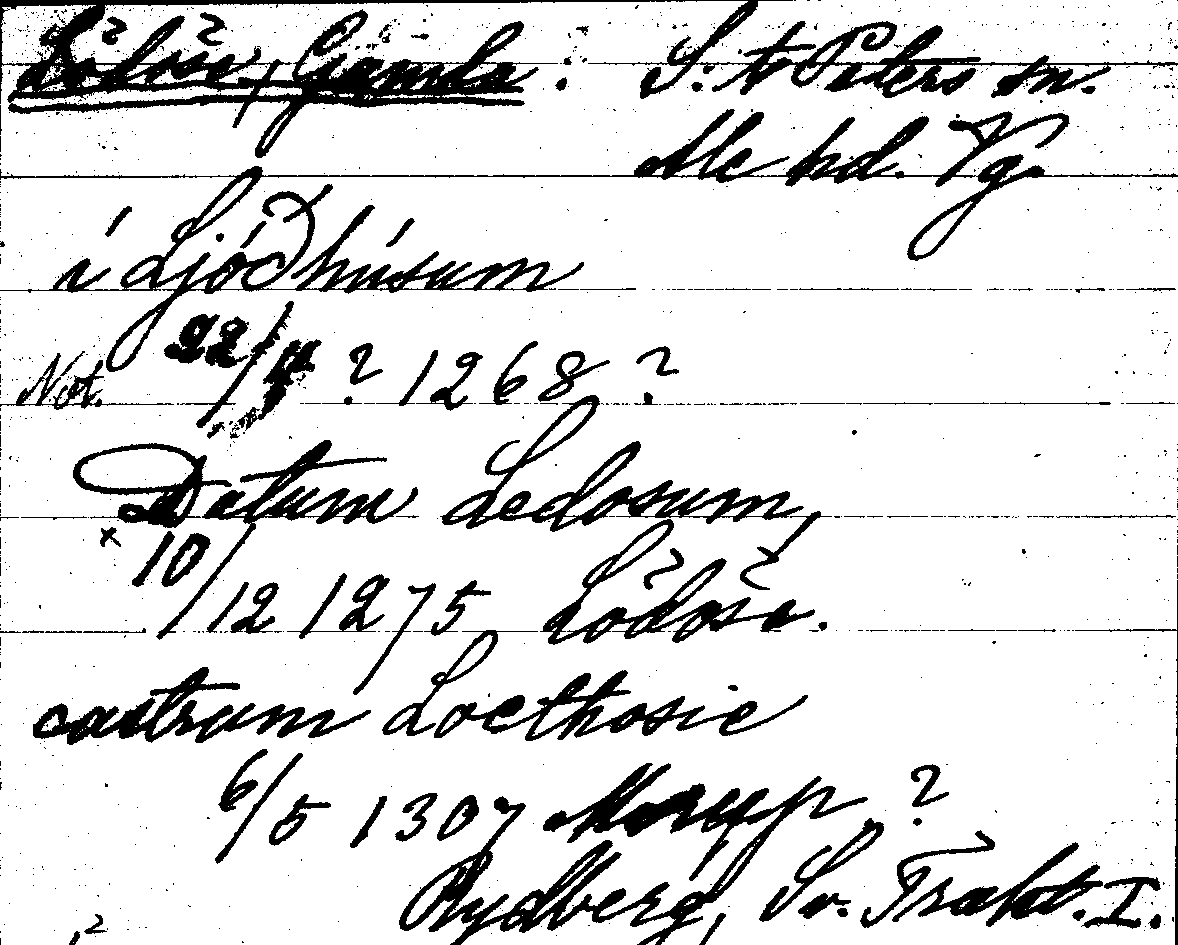 Lödöse, Gamla: S:t Peters sn.
Ale hd. Vg.
í Ljóðhúsum
Not. 22/4 ? 1268 ?
Datum Ledosum,
x 10/12 1275 Lödöse.
castrum Loethosie
6/5 1307 Morup ?
Rydberg, Sv. Trakt. I.